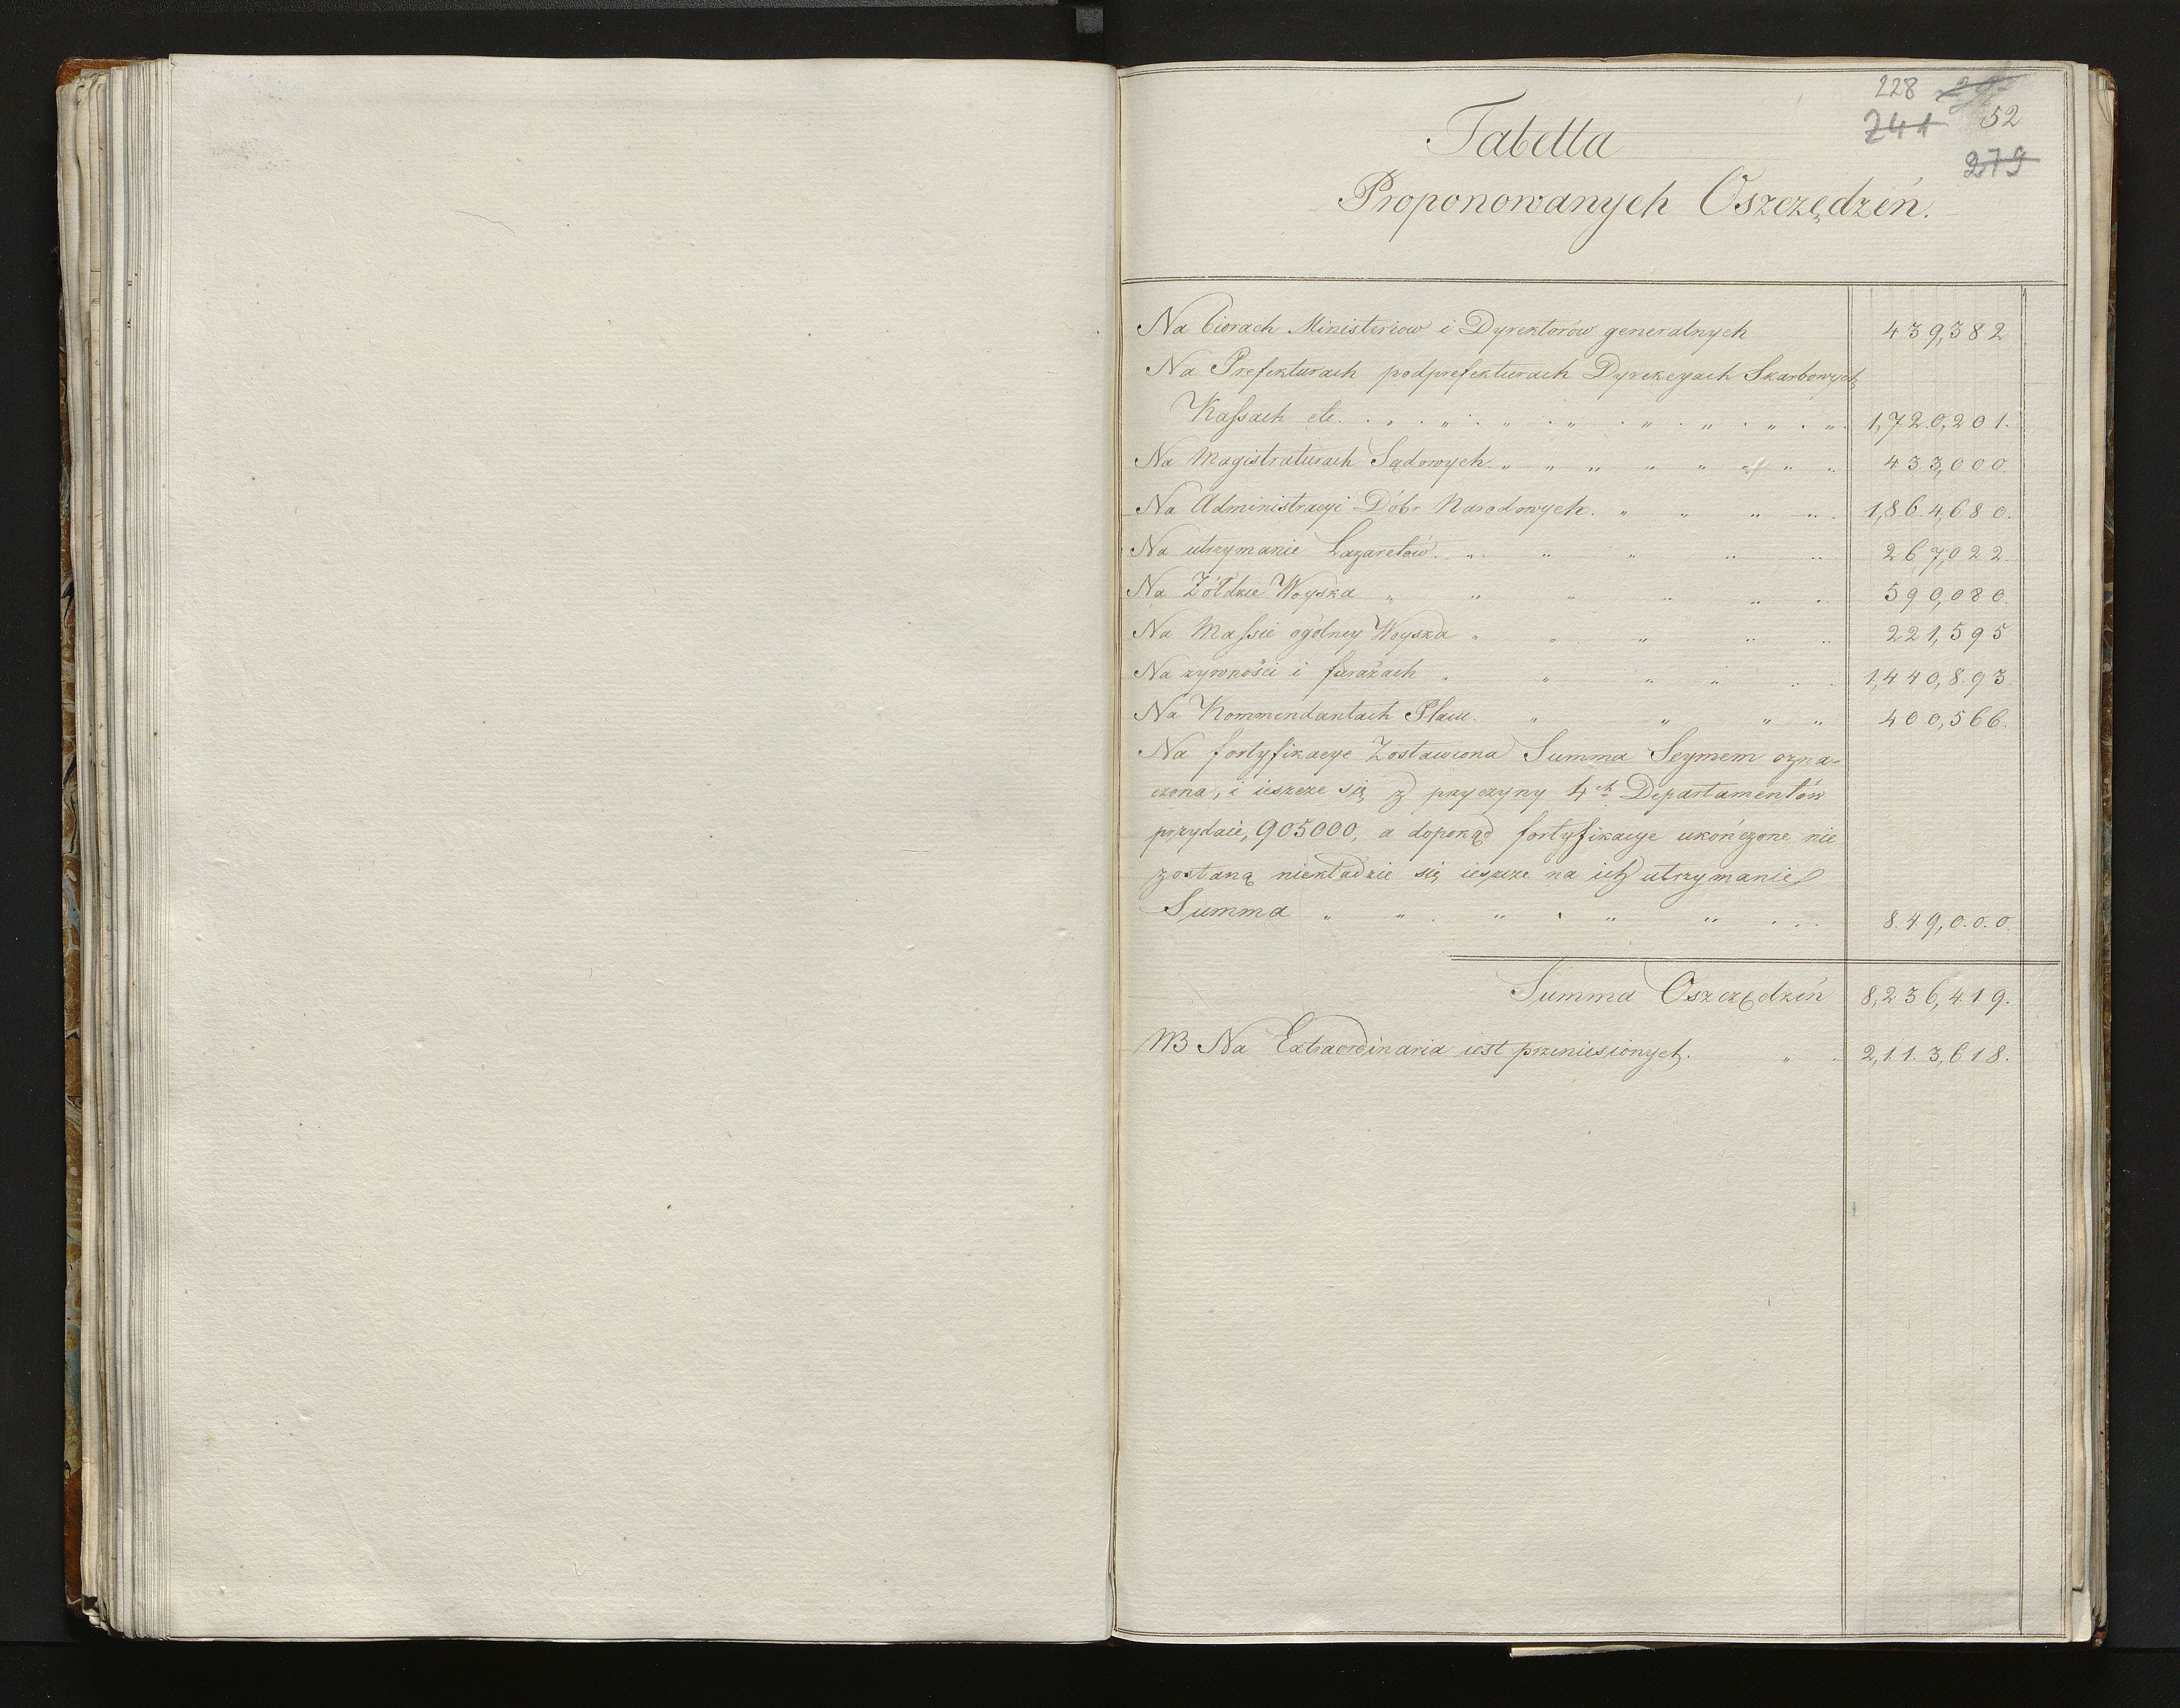 228
241 52
279
Tabella
Proponowanych Oszczędzeń.
Na biorach Ministeriow i Dyrektorów generalnych 439,382
Na Prefekturach podprefekturach Dyrekcyach Skarbowych
Kaſsach etc. 1,720,201.
Na Magistraturach Sądowych 433,000
Na Administracyi Dóbr Narodowych. 1,864,680.
Na utrzymanie Lazaretów 267,022.
Na Żółdzie Woyska 590,080.
Na Maſsie ogólney Woyska 221,595
Na zywności i furażach 1,440,893
Na Kommendantach Placu. 400,566.
Na fortyfikacye Zostawiona Summa Seymem ozna-
czona, i ieszcze się z przyczyny 4ch Departamentów
przydaie, 905000, a dopokąd fortyfikacye ukończone nie
zostaną niekładzie się ieszcze na ich utrzymanie
Summa 849,000.
Summa Oszczędzeń 8,236,419.
NB Na Extraordinaria iest przeniesionych. 2,113,618.